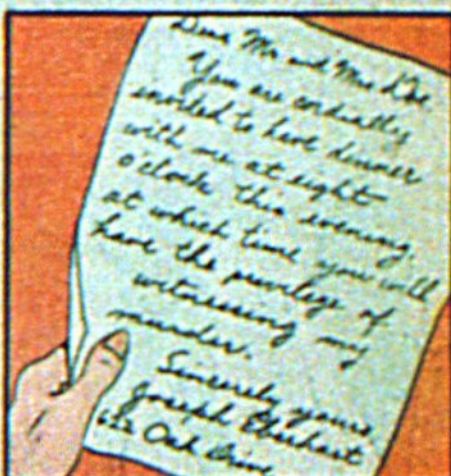 Dear Mr and Mrs Doe
You are cordially
invited to have dinner
with me at eight
o'clock this evening,
at which time you will
have the privilege of
witnessing my
murder.
Sincerely yours,
Joseph Eberhart
622 Oak Drive